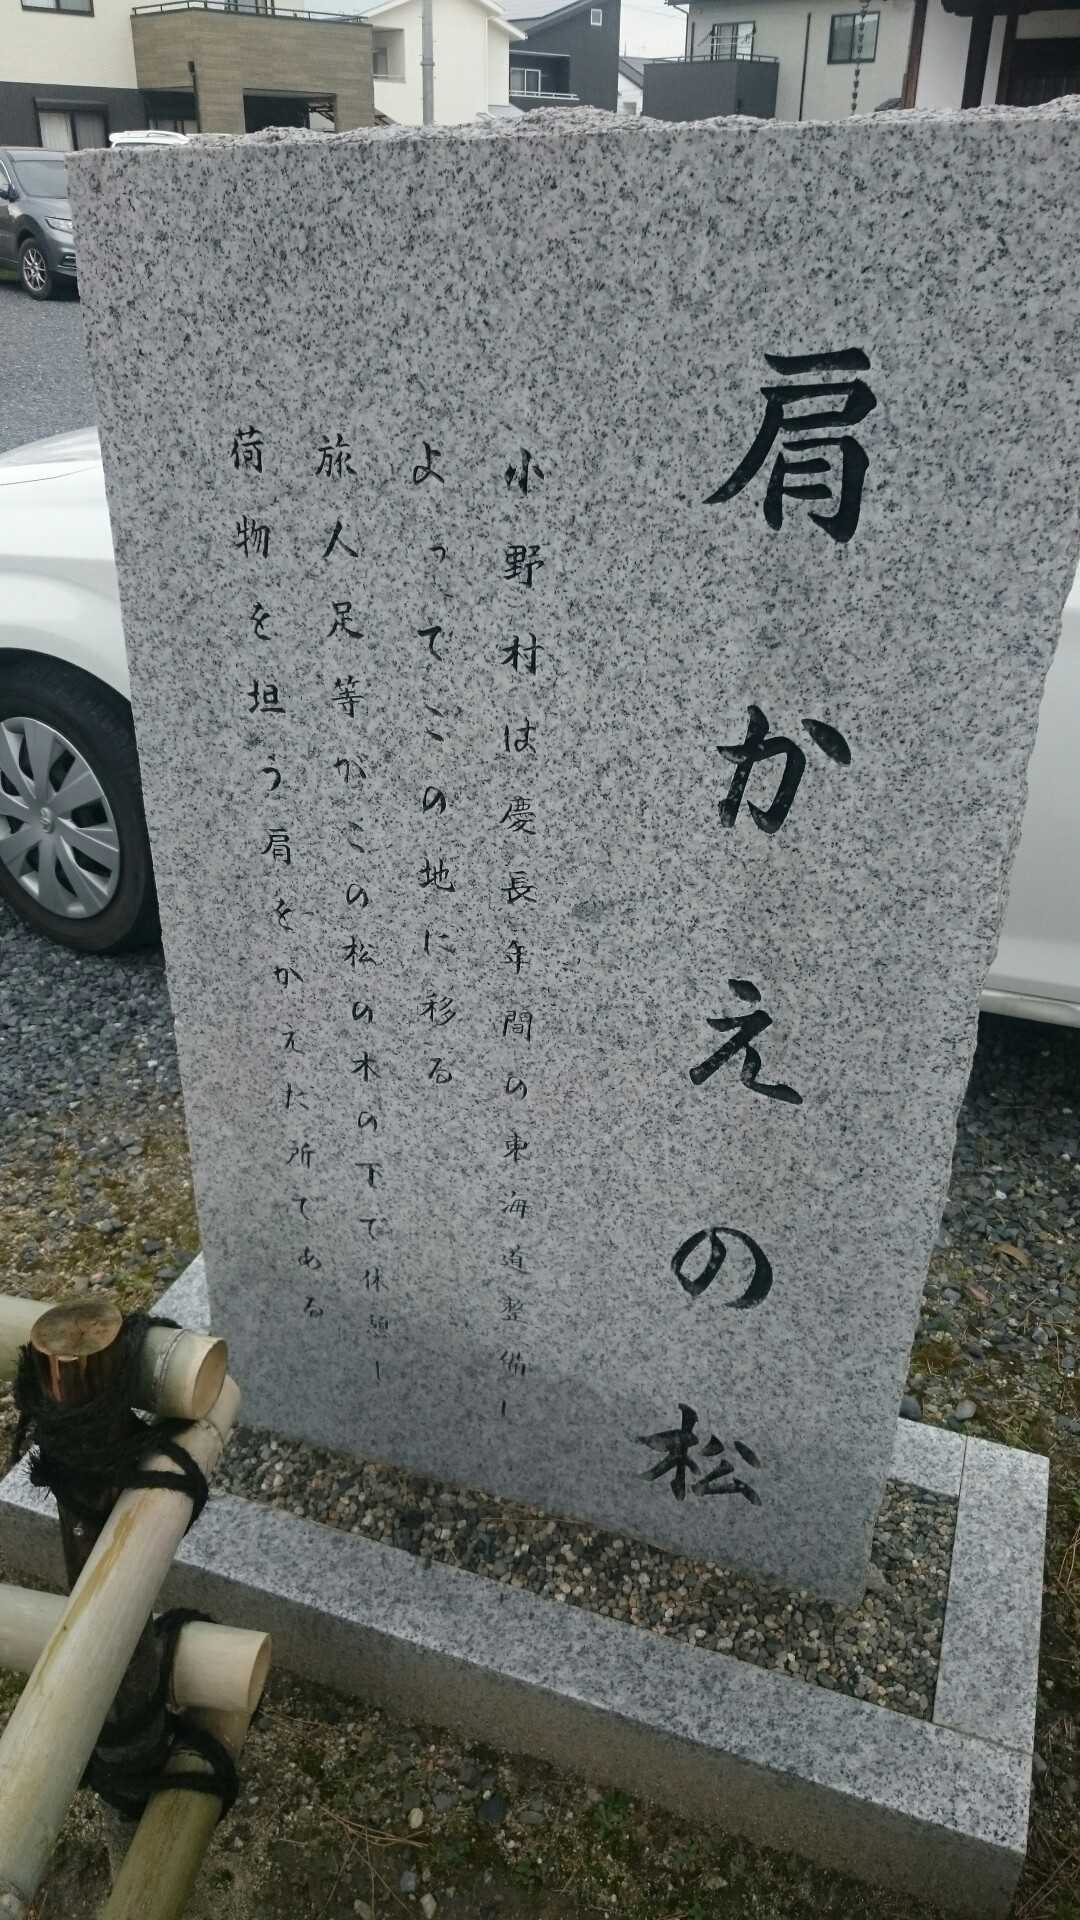 肩かえの松
小野村は慶長年間の東海道整備に
よってこの地に移る
旅人足等がこの松の木の下で休憩し
荷物を担う肩をかえた所である